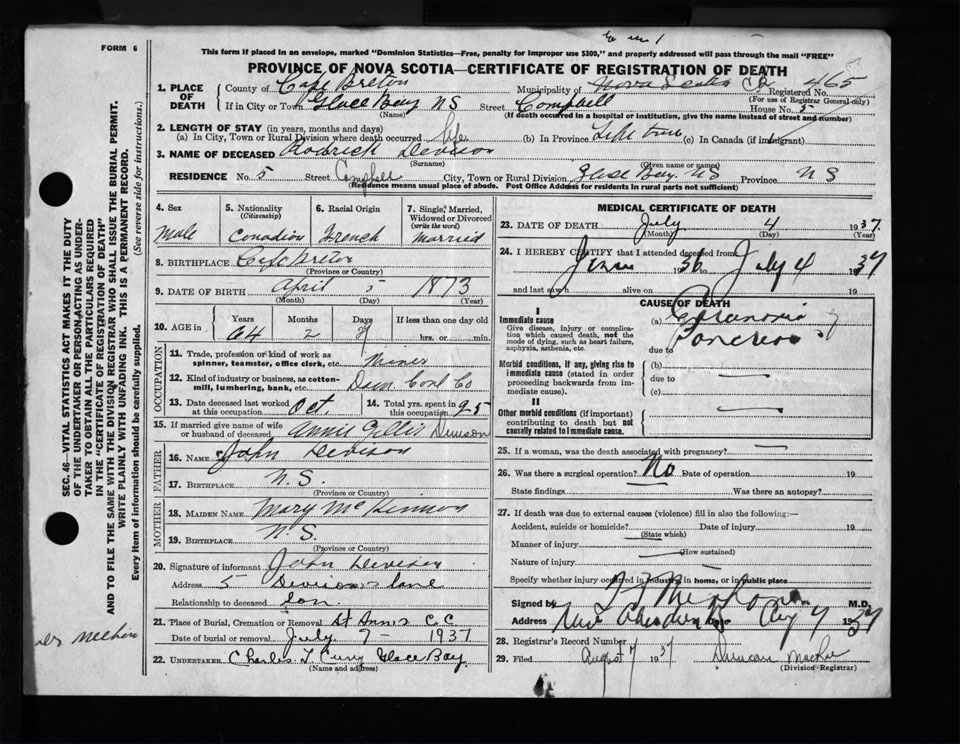 FORM 6
This form if placed in an envelope, marked "Dominion Statistics—Free, penalty for improper use $300," and properly addressed will pass through the mail "FREE"
PROVINCE OF NOVA SCOTIA—CERTIFICATE OF REGISTRATION OF DEATH
SEC. 46—VITAL STATISTICS ACT MAKES IT THE DUTY
OF THE UNDERTAKER OR PERSON ACTING AS UNDER-
TAKER TO OBTAIN ALL THE PARTICULARS REQUIRED
IN THE "CERTIFICATE OF REGISTRATION OF DEATH"
AND TO FILE THE SAME WITH THE DIVISION REGISTRAR WHO SHALL ISSUE THE BURIAL PERMIT.
WRITE PLAINLY WITH UNFADING INK. THIS IS A PERMANENT RECORD.
Every item of information should be carefully supplied.
(See reverse side for instructions.)
1. PLACE OF DEATH County of Cape Breton Municipality of Nova Scotia CB Registered No. 465
(For use of Registrar General only)
If in City or Town Glace Bay NS Street Campbell House No. 5
(Name) (If death occurred in a hospital or institution, give the name instead of street and number)
2. LENGTH OF STAY (in years, months and days)
(a) In City, Town or Rural Division where death occurred life (b) In Province Life time (c) In Canada (if immigrant)
3. NAME OF DECEASED Roderick Devison
(Surname) (Given name or names)
RESIDENCE No. 5 Street Campbell City, Town or Rural Division Glace Bay. NS Province N S
(Residence means usual place of abode. Post Office Address for residents in rural parts not sufficient)
4. Sex Male
5. Nationality (Citizenship) Canadian
6. Racial Origin French
7. Single, Married, Widowed or Divorced (write the word) Married
8. BIRTHPLACE Cape Breton
(Province or Country)
9. DATE OF BIRTH April 5 1873
(Month) (Day) (Year)
10. AGE in Years 64 Months 2 Days 29 If less than one day old hrs. or min.
OCCUPATION
11. Trade, profession or kind of work as spinner, teamster, office clerk, etc. Miner
12. Kind of industry or business, as cotton-mill, lumbering, bank, etc. Dom Coal Co
13. Date deceased last worked at this occupation Oct. 14. Total yrs. spent in this occupation 25
15. If married give name of wife or husband of deceased Annie Gillis Devison
FATHER
16. Name John Devison
17. Birthplace N.S.
(Province or Country)
MOTHER
18. Maiden Name Mary McKinnon
19. Birthplace N.S.
(Province or Country)
20. Signature of informant John Devison
Address 5 Devisons lane
Relationship to deceased Son.
21. Place of Burial, Cremation or Removal St Annes C.C
Date of burial or removal July 7 - 1937
22. UNDERTAKER Charles L Curry Glace Bay
(Name and address)
MEDICAL CERTIFICATE OF DEATH
23. DATE OF DEATH July 4 1937
(Month) (Day) (Year)
24. I HEREBY CERTIFY that I attended deceased from
June 1936 to July 4 1937
and last saw alive on 19
CAUSE OF DEATH
I
Immediate cause
Give disease, injury or complication which caused death, not the mode of dying, such as heart failure, asphyxia, asthenia, etc.
(a) Carcinoma of
Pancreas
due to
Morbid conditions, if any, giving rise to immediate cause (stated in order proceeding backwards from immediate cause).
(b)
due to
(c)
II
Other morbid conditions (if important) contributing to death but not causally related to immediate cause.
25. If a woman, was the death associated with pregnancy?
26. Was there a surgical operation? No Date of operation 19
State findings Was there an autopsy?
27. If death was due to external causes (violence) fill in also the following:—
Accident, suicide or homicide? Date of injury 19
(State which)
Manner of injury
(How sustained)
Nature of injury
Specify whether injury occurred in industry, in home, or in public place
Signed by M.D.
Address New Aberdeen Aug 7 1937
28. Registrar's Record Number
29. Filed August 7 1937 Duncan MacRae
(Division Registrar)